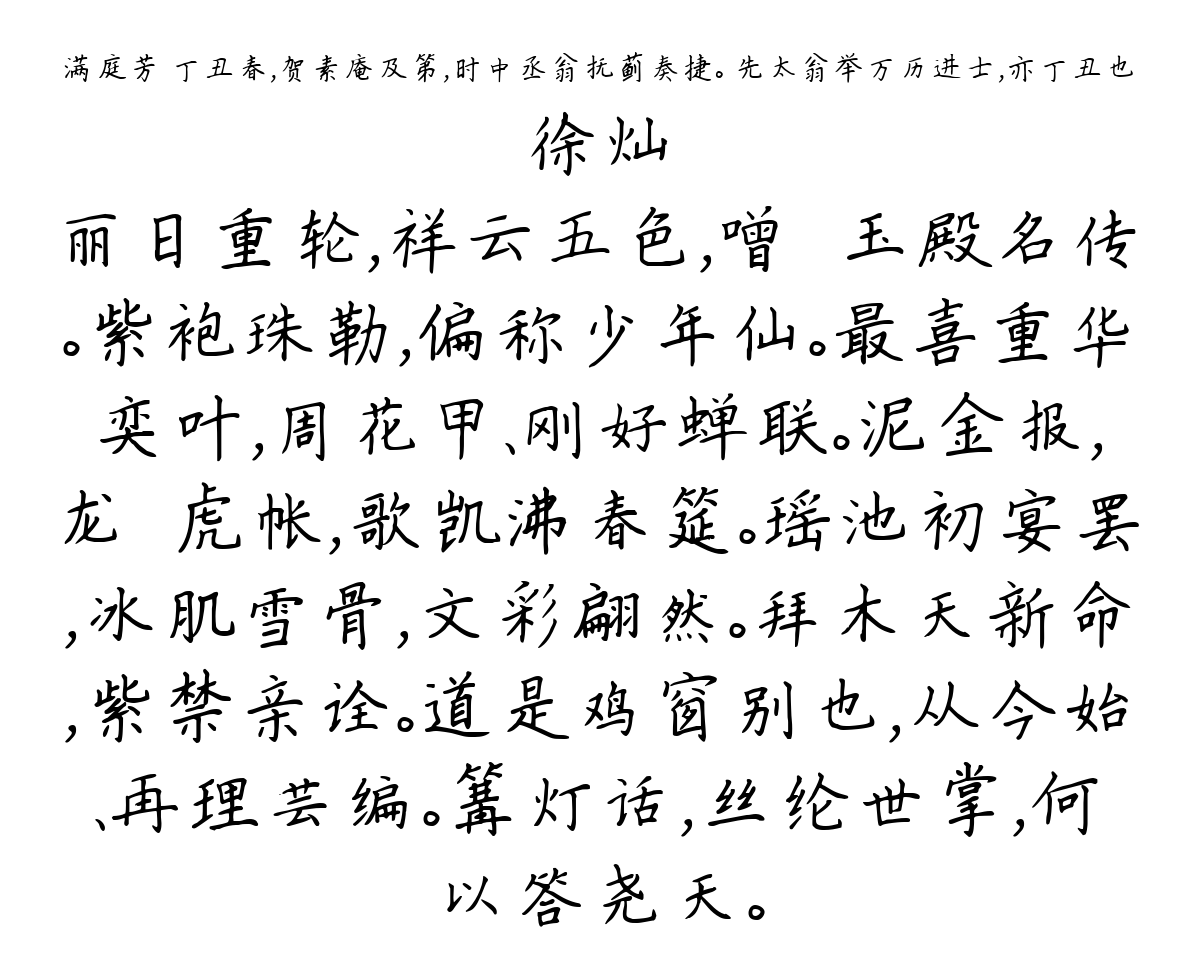 满庭芳 丁丑春,贺素庵及第,时中丞翁抚蓟奏捷。先太翁举万历进士,亦丁丑也
徐灿
丽日重轮,祥云五色,噌 玉殿名传
。紫袍珠勒,偏称少年仙。最喜重华
奕叶,周花甲、刚好蝉联。泥金报,
龙 虎帐,歌凯沸春筵。瑶池初宴罢
,冰肌雪骨,文彩翩然。拜木天新命
,紫禁亲诠。道是鸡窗别也,从今始
、再理芸编。篝灯话,丝纶世掌,何
以答尧天。